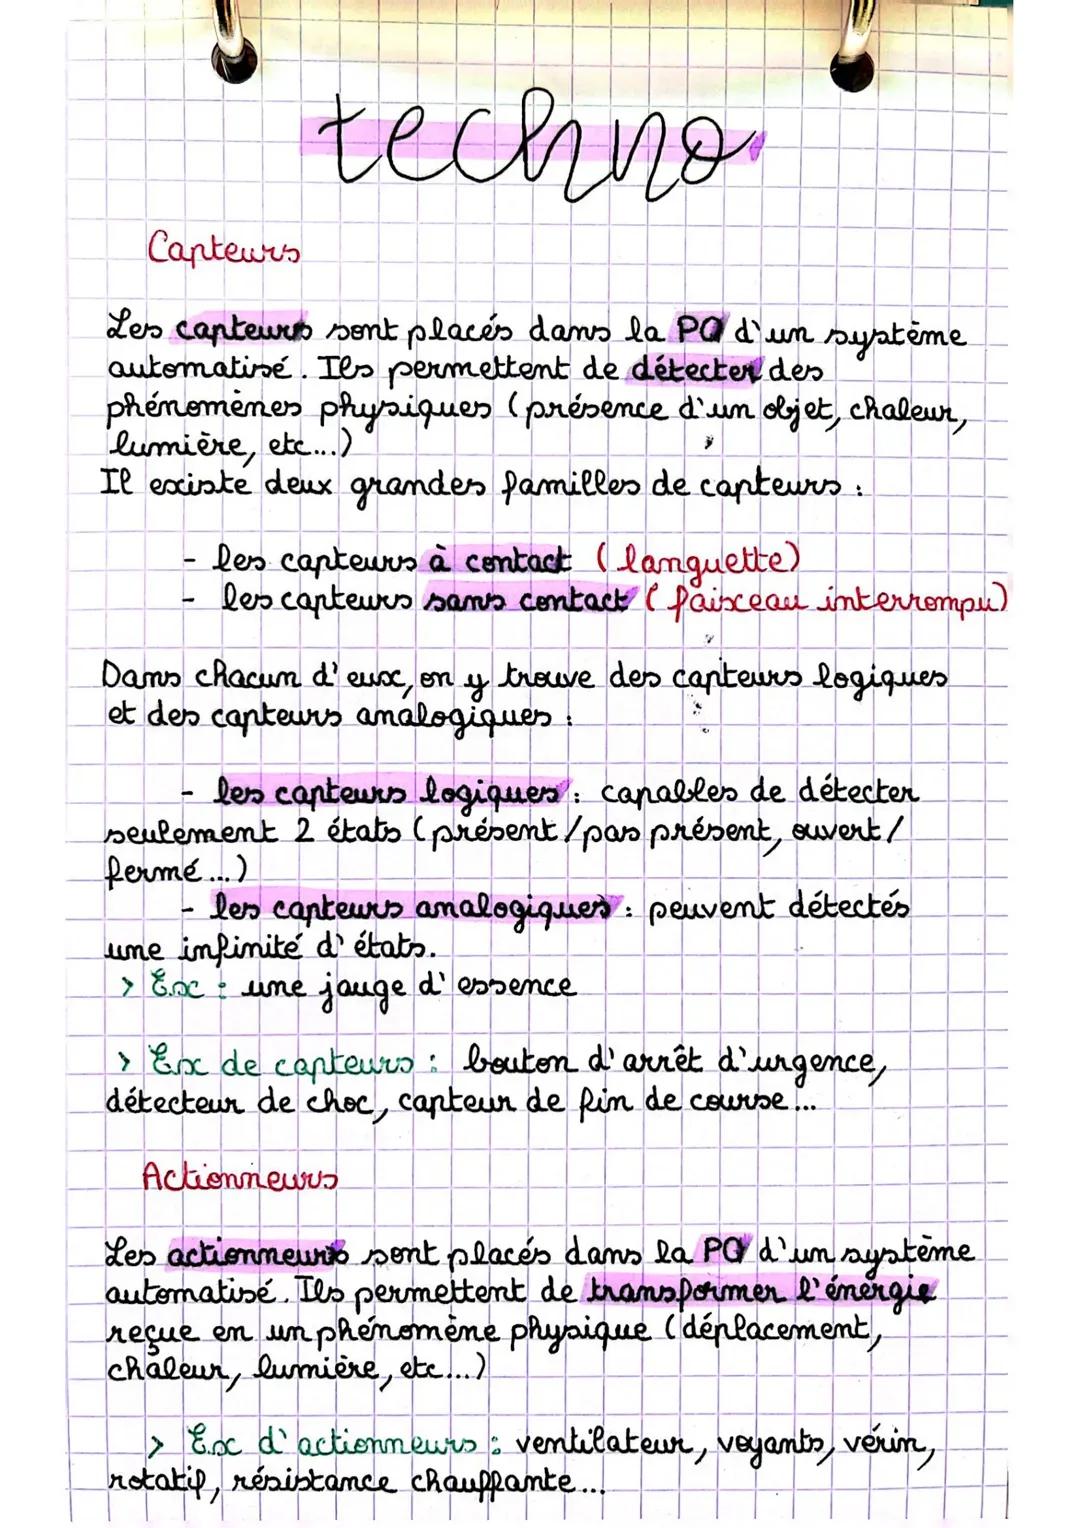 techno
Capteurs
Les capteurs sont placés dans la PO d'un système
automatisé. Ils permettent de détecter des
phénomènes physiques (présence d'un objet, chaleur,
lumière, etc...)
Il existe deux grandes familles de capteurs :
- les capteurs à contact (languette)
- les capteurs sans contact (faisceau interrompu)
Dans chacun d'eux, on y trouve des capteurs logiques
et des capteurs analogiques :
- les capteurs logiques : capables de détecter
seulement 2 états (présent/pas présent, ouvert/
fermé...)
- les capteurs analogiques : peuvent détectés
une infinité d'états.
> Ex : une jauge d'essence
> Ex de capteurs : bouton d'arrêt d'urgence,
détecteur de choc, capteur de fin de course...
Actionneurs
Les actionneurs sont placés dans la PO d'un système
automatisé. Ils permettent de transformer l'énergie
reçue en un phénomène physique (déplacement,
chaleur, lumière, etc...)
> Ex d'actionneurs : ventilateur, voyants, vérin,
rotatif, résistance chauffante...